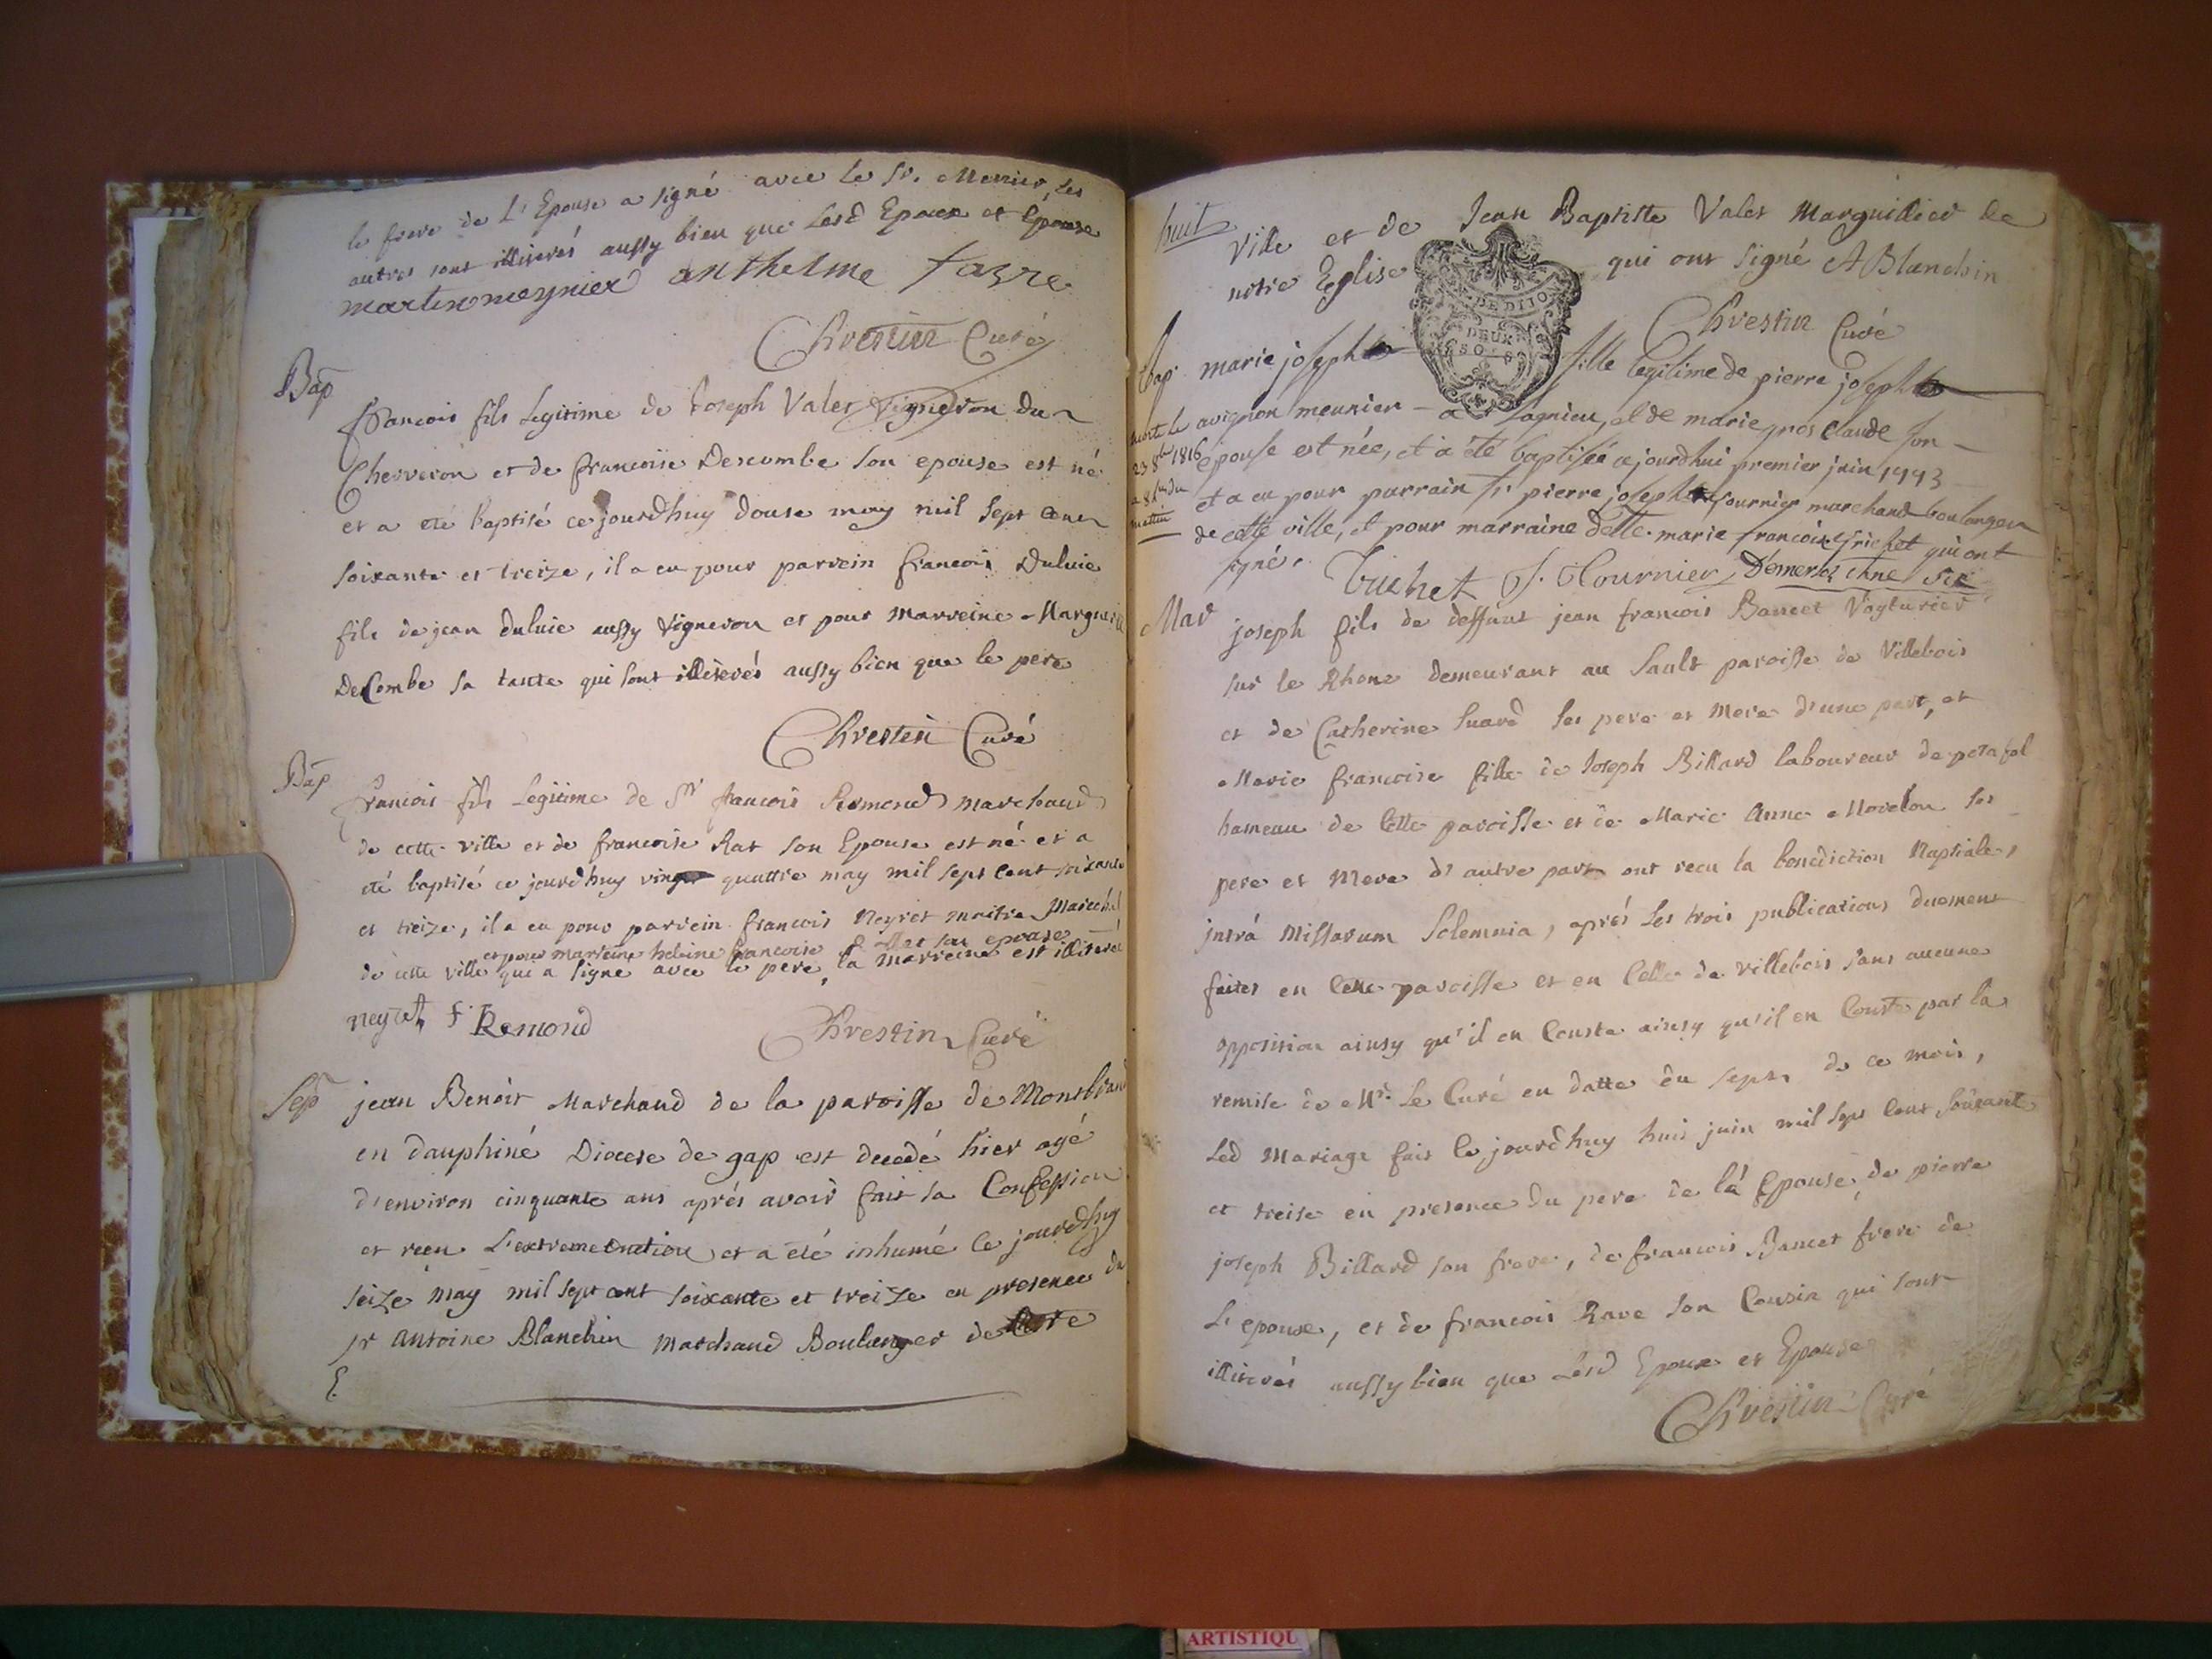 le frere de L'Epouse a signé avec le Sr. Menier, les
autres sont illiterés aussy bien que Lesd Epoux et Epouse
martin meynier anthelme favre
Chrestin Curé
Bap
francois fils Legitime de Joseph Valet Vigneron du
Cherveron et de francoise Descombe son epouse est né
et a eté baptisé ce jourdhuy douse may mil sept cent
soixante et treize, il a eu pour parrein francois Duluie
fils de jean duluie aussy Vigneron et pour Marreine Marguerite
DeCombe sa tante qui sont illiterés aussy bien que le pere
Chrestin Curé
Bap
francois fils Legitime de Sr francois Remond marchand
de cette ville et de francoise Rat son Epouse est né et a
eté baptisé ce jourdhuy vingt quattre may mil sept cent soixante
et treize, il a eu pour parrein francois Neyret maitre Marechal
et pour marreine helaine francoise son epouse
de cette ville qui a signe avec le pere, la marreine est illiterée
neyret f. Remond
Chrestin Curé
Sep
jean Benoit Marchand de la paroisse de Montbrand
en dauphiné Diocese de gap est decedé hier agé
d'environ cinquante ans aprés avoir fait sa Confession
et recu L'extreme onction et a eté inhumé ce jourdhuy
seize may mil sept cent soixante et treize en presence du
sr antoine Blanchin marchand Boulanger de cette
huit
Ville et de Jean Baptiste Valet Marguillier de
notre Eglise qui ont signé A Blanchin
DE DIJO
DEUX
SO S
Chrestin Curé
Bap. marie joseph fille legitime de pierre joseph
avignon meunier a lagnieu, et de marie gros claude son
morte le
23 8bre 1816
a 8 h du
matin
épouse est née, et a été baptisée cejourdhui premier juin 1773
et a eu pour parrain Sr pierre joseph fournier marchand boulanger
de cette ville, et pour marraine Delle. marie francoise trichet qui ont
signé. Trichet J. Fournier, Démerloz chne
Mar
joseph fils de deffunt jean francois Bancet Voyturier
sur le Rhone demeurant au Sault paroisse de Villebois
et de Catherine Suard ses pere et Mere d'une part, et
Marie francoise fille de Joseph Billard laboureur de posafol
hameau de Cette paroisse et de Marie Anne Morelon ses
pere et Mere d'autre part ont recu la benediction Nuptiale,
jntrá Missarum Solemnia, aprés les trois publications duement
faites en Cette paroisse et en Celle de villebois sans aucune
opposition ainsy qu'il en Conste ainsy qu'il en Conste par la
remise de Mr. Le Curé en datte du sept de ce mois,
Led Mariage fait Ce jourdhuy huit juin mil sept Cent soixante
et treise en presence du pere de la Epouse, de pierre
joseph Billard son frere, de francois Bancet frere de
L'epouse, et de francois Rave son Cousin qui sont
illiterés aussy bien que Lesd Epoux et Epouse
Chrestin Curé
ARTISTIQU